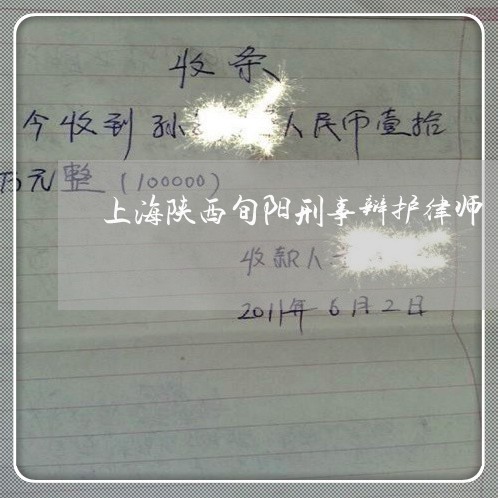 收条
今收到孙 人民币壹拾
万元整(100000)
上海陕西旬阳刑事辩护律师
收款人
2011年6月2日